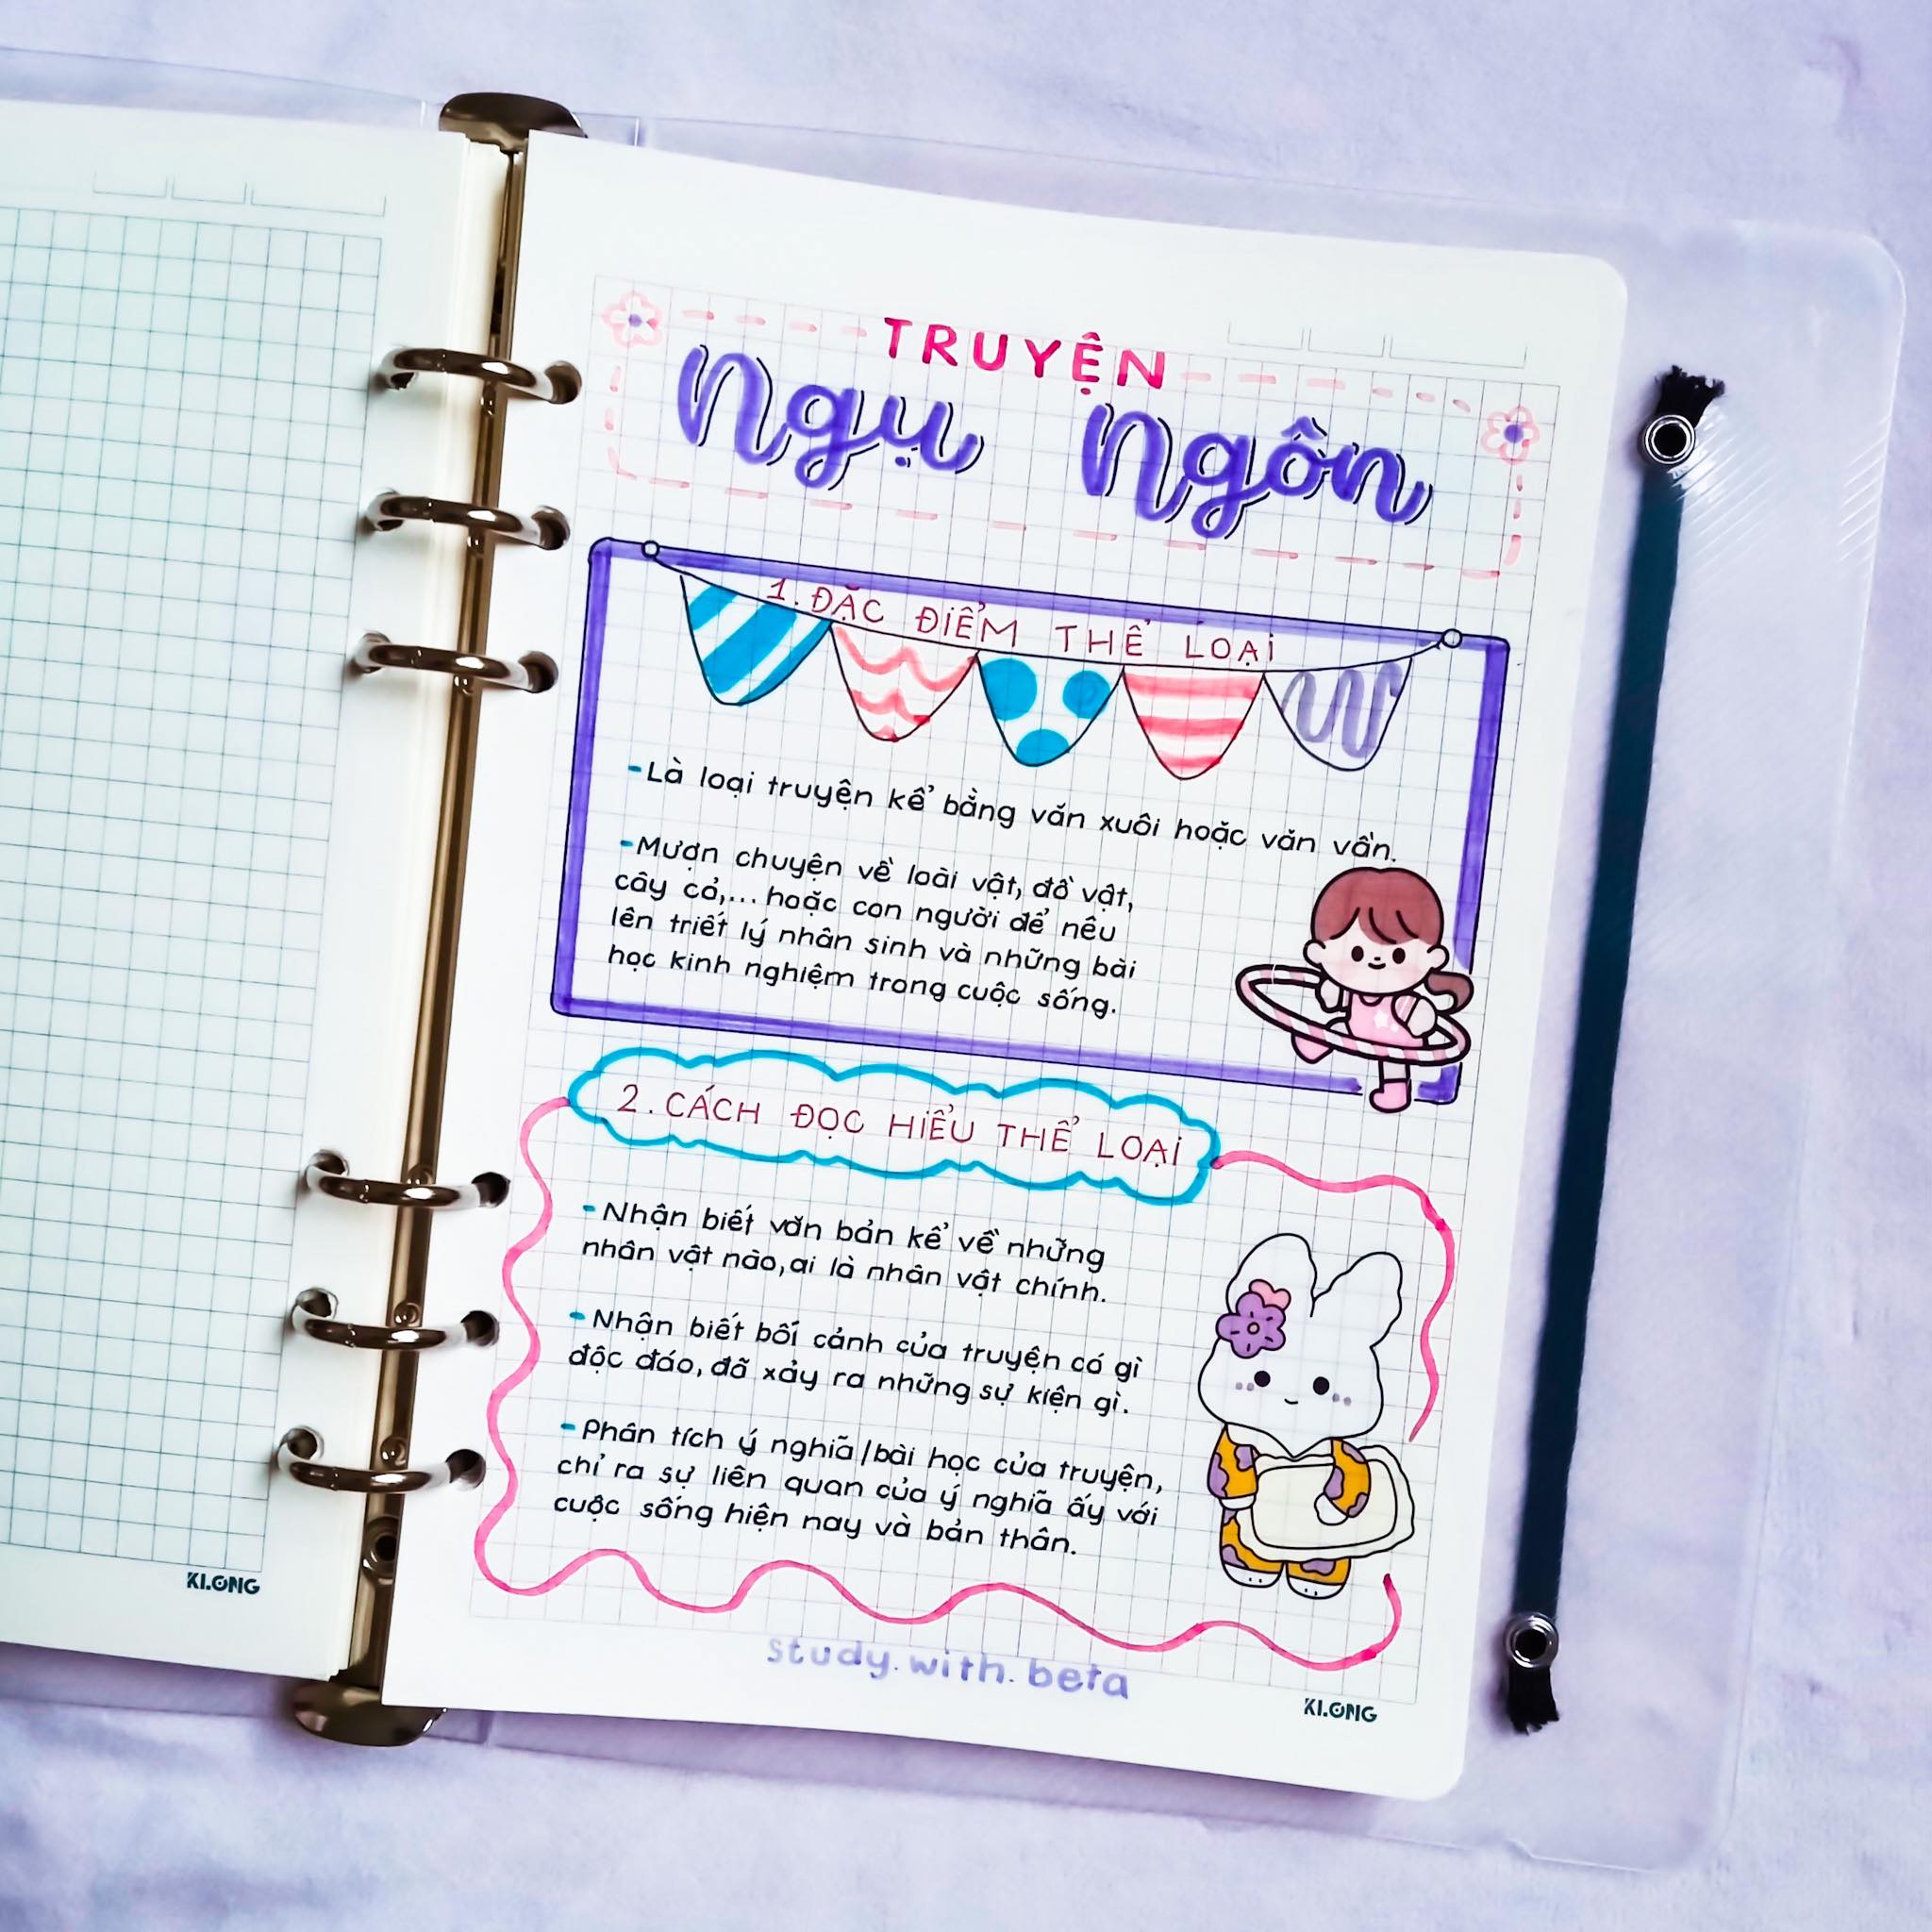 TRUYỆN
Ngụ Ngôn
1. ĐẶC ĐIỂM THỂ LOẠI
- Là loại truyện kể bằng văn xuôi hoặc văn vần.
- Mượn chuyện về loài vật, đồ vật,
cây cỏ,... hoặc con người để nêu
lên triết lý nhân sinh và những bài
học kinh nghiệm trong cuộc sống.
2. CÁCH ĐỌC HIỂU THỂ LOẠI
- Nhận biết văn bản kể về những
nhân vật nào, ai là nhân vật chính.
- Nhận biết bối cảnh của truyện có gì
độc đáo, đã xảy ra những sự kiện gì.
- Phân tích ý nghĩa/bài học của truyện,
chỉ ra sự liên quan của ý nghĩa ấy với
cuộc sống hiện nay và bản thân.
study.with.beta
KLONG
KLONG